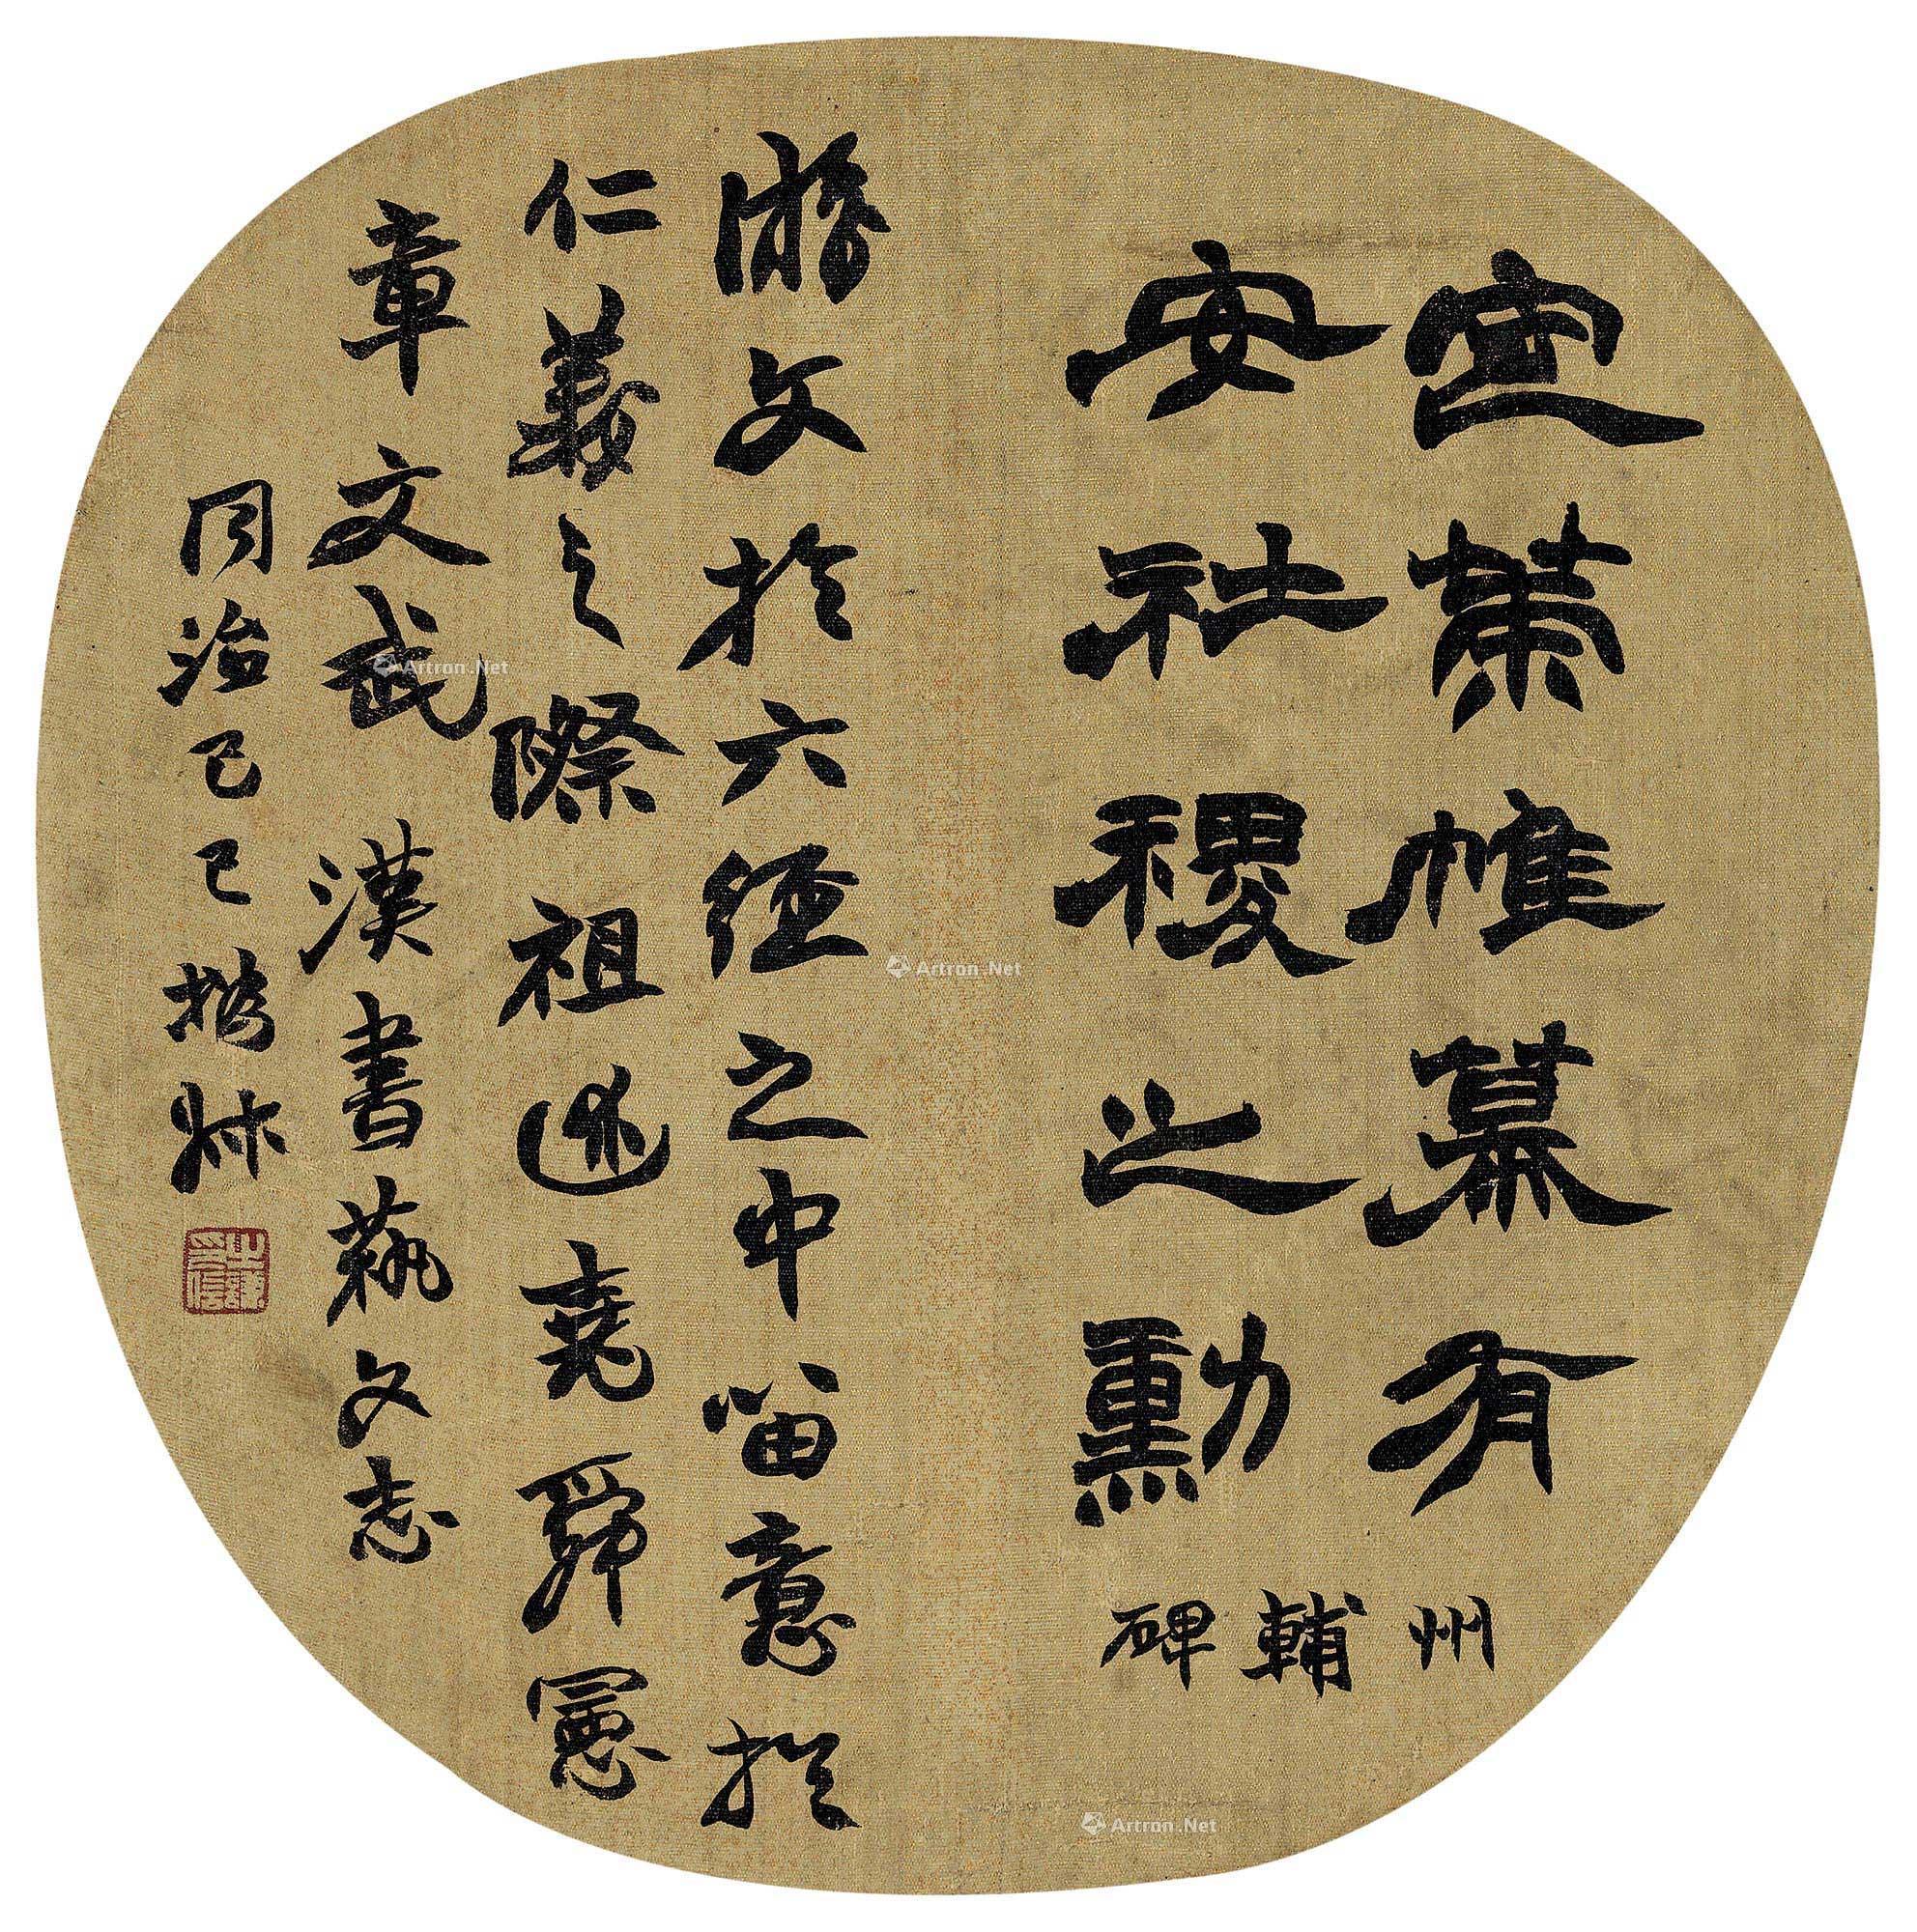 定策帷幕有
安社稷之勳
州輔碑
游文於六經之中留意於
仁義之際祖述堯舜憲
章文武 漢書蓺文志
同治己巳撝叔
之謙印信
Artron.Net
Artron.Net
Artron.Net